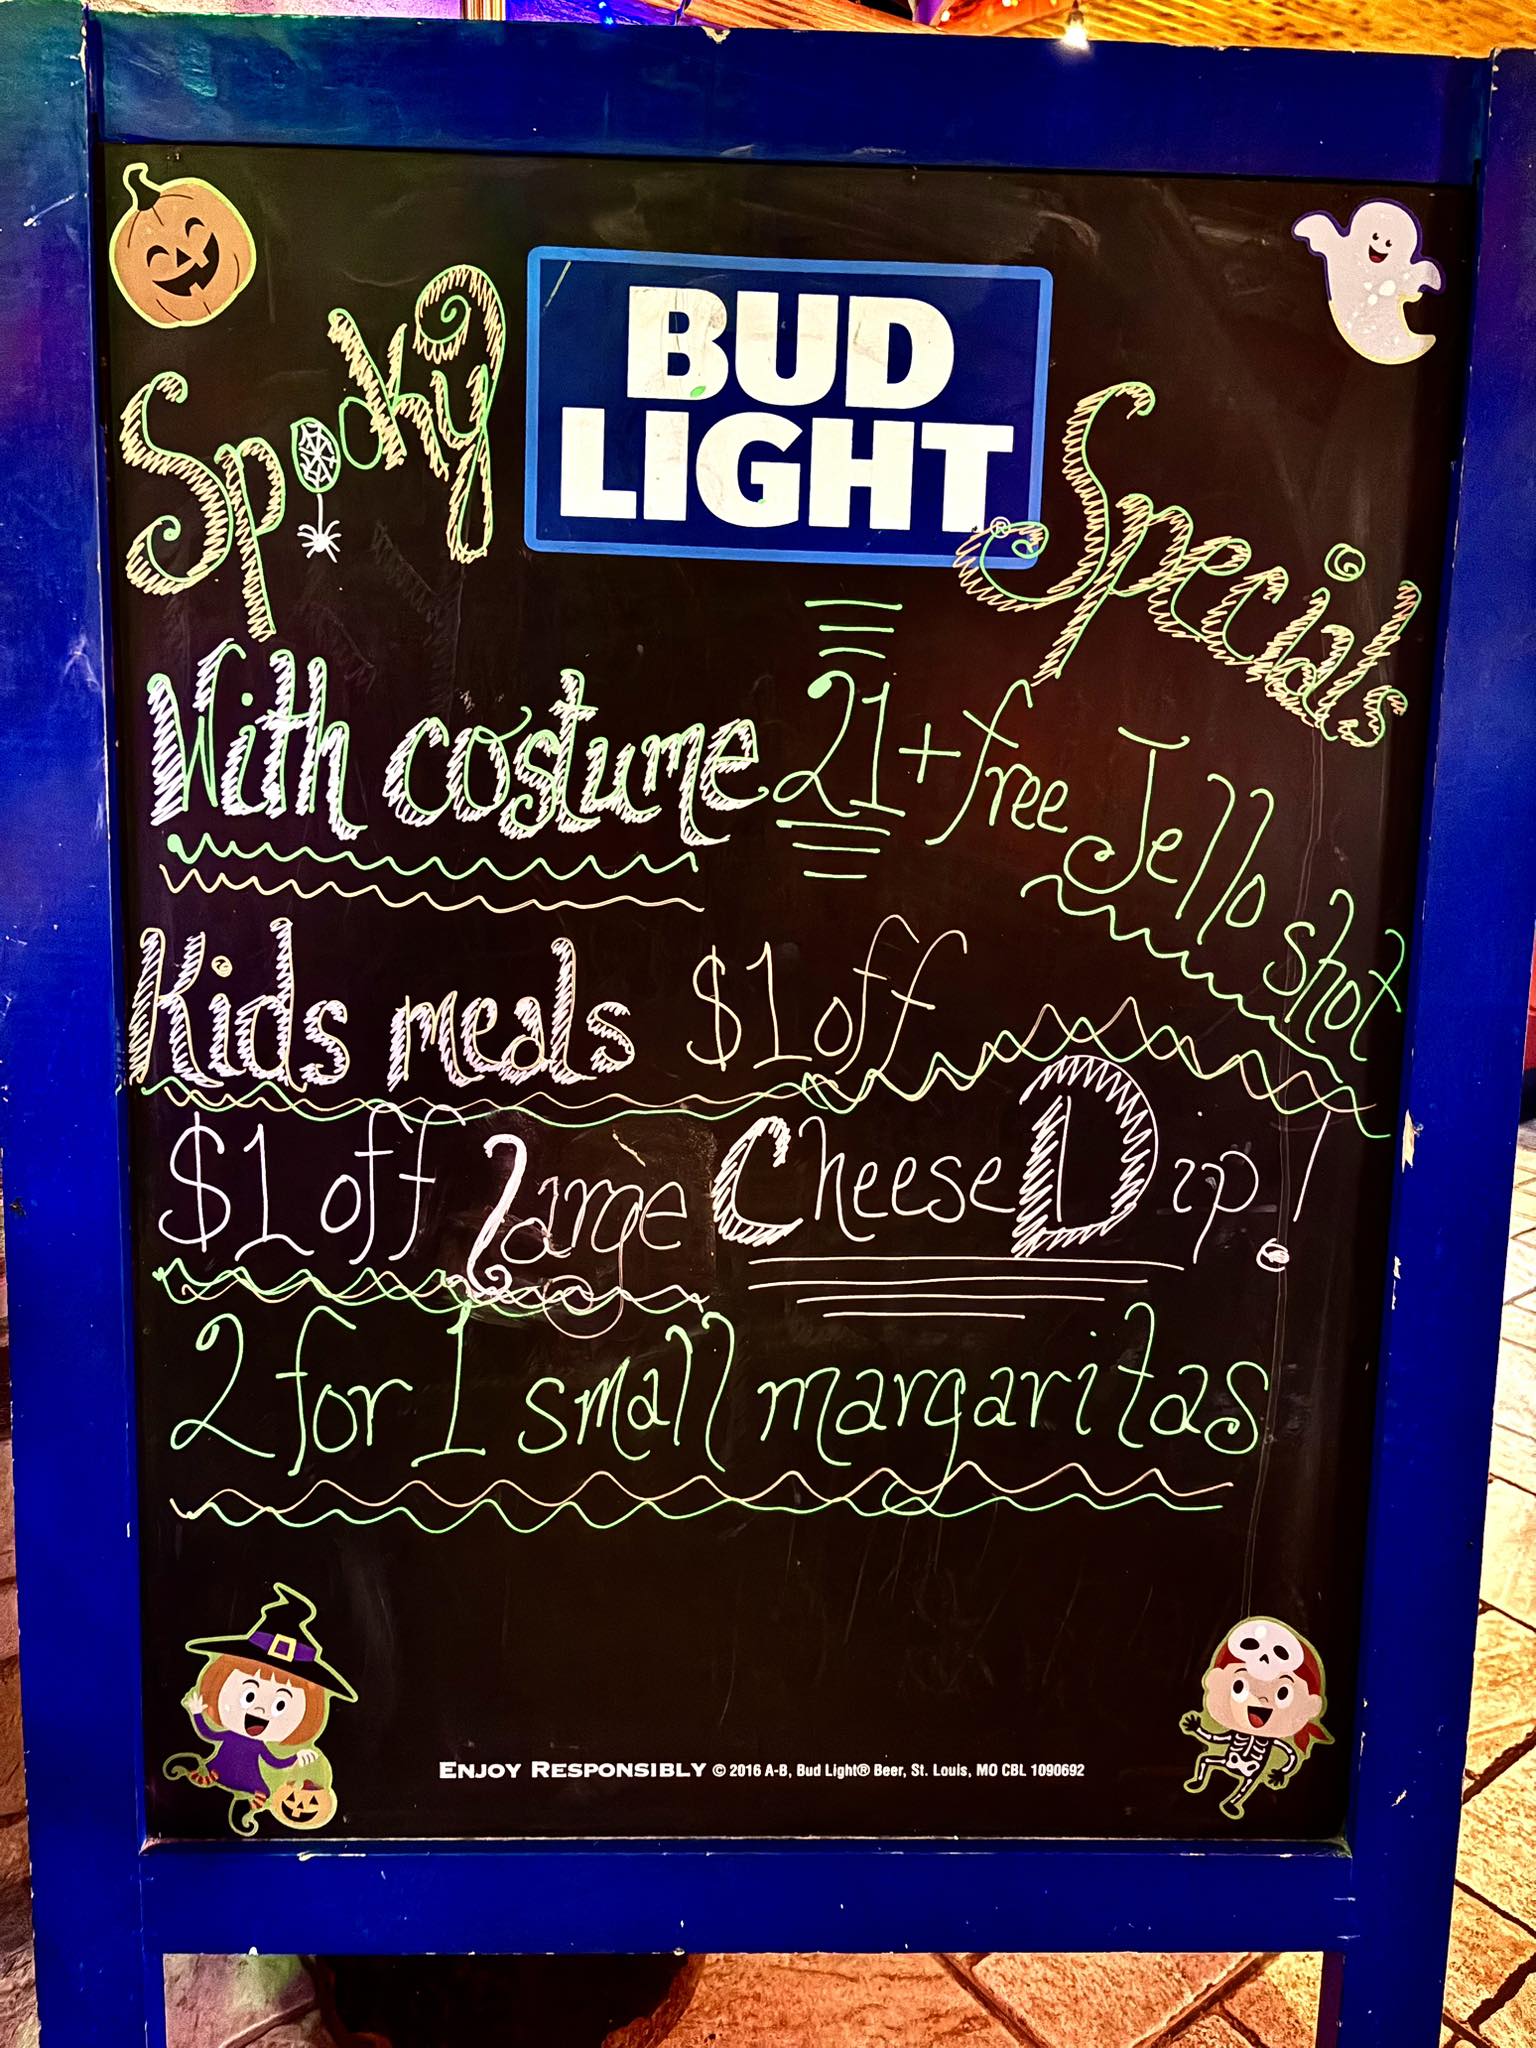 BUD
LIGHT®
Spooky Specials
With costume 21+ free Jello shot
Kids meals $1 off
$1 off large Cheese Dip!
2 for 1 small margaritas
ENJOY RESPONSIBLY © 2016 A-B, Bud Light® Beer, St. Louis, MO CBL 1090692